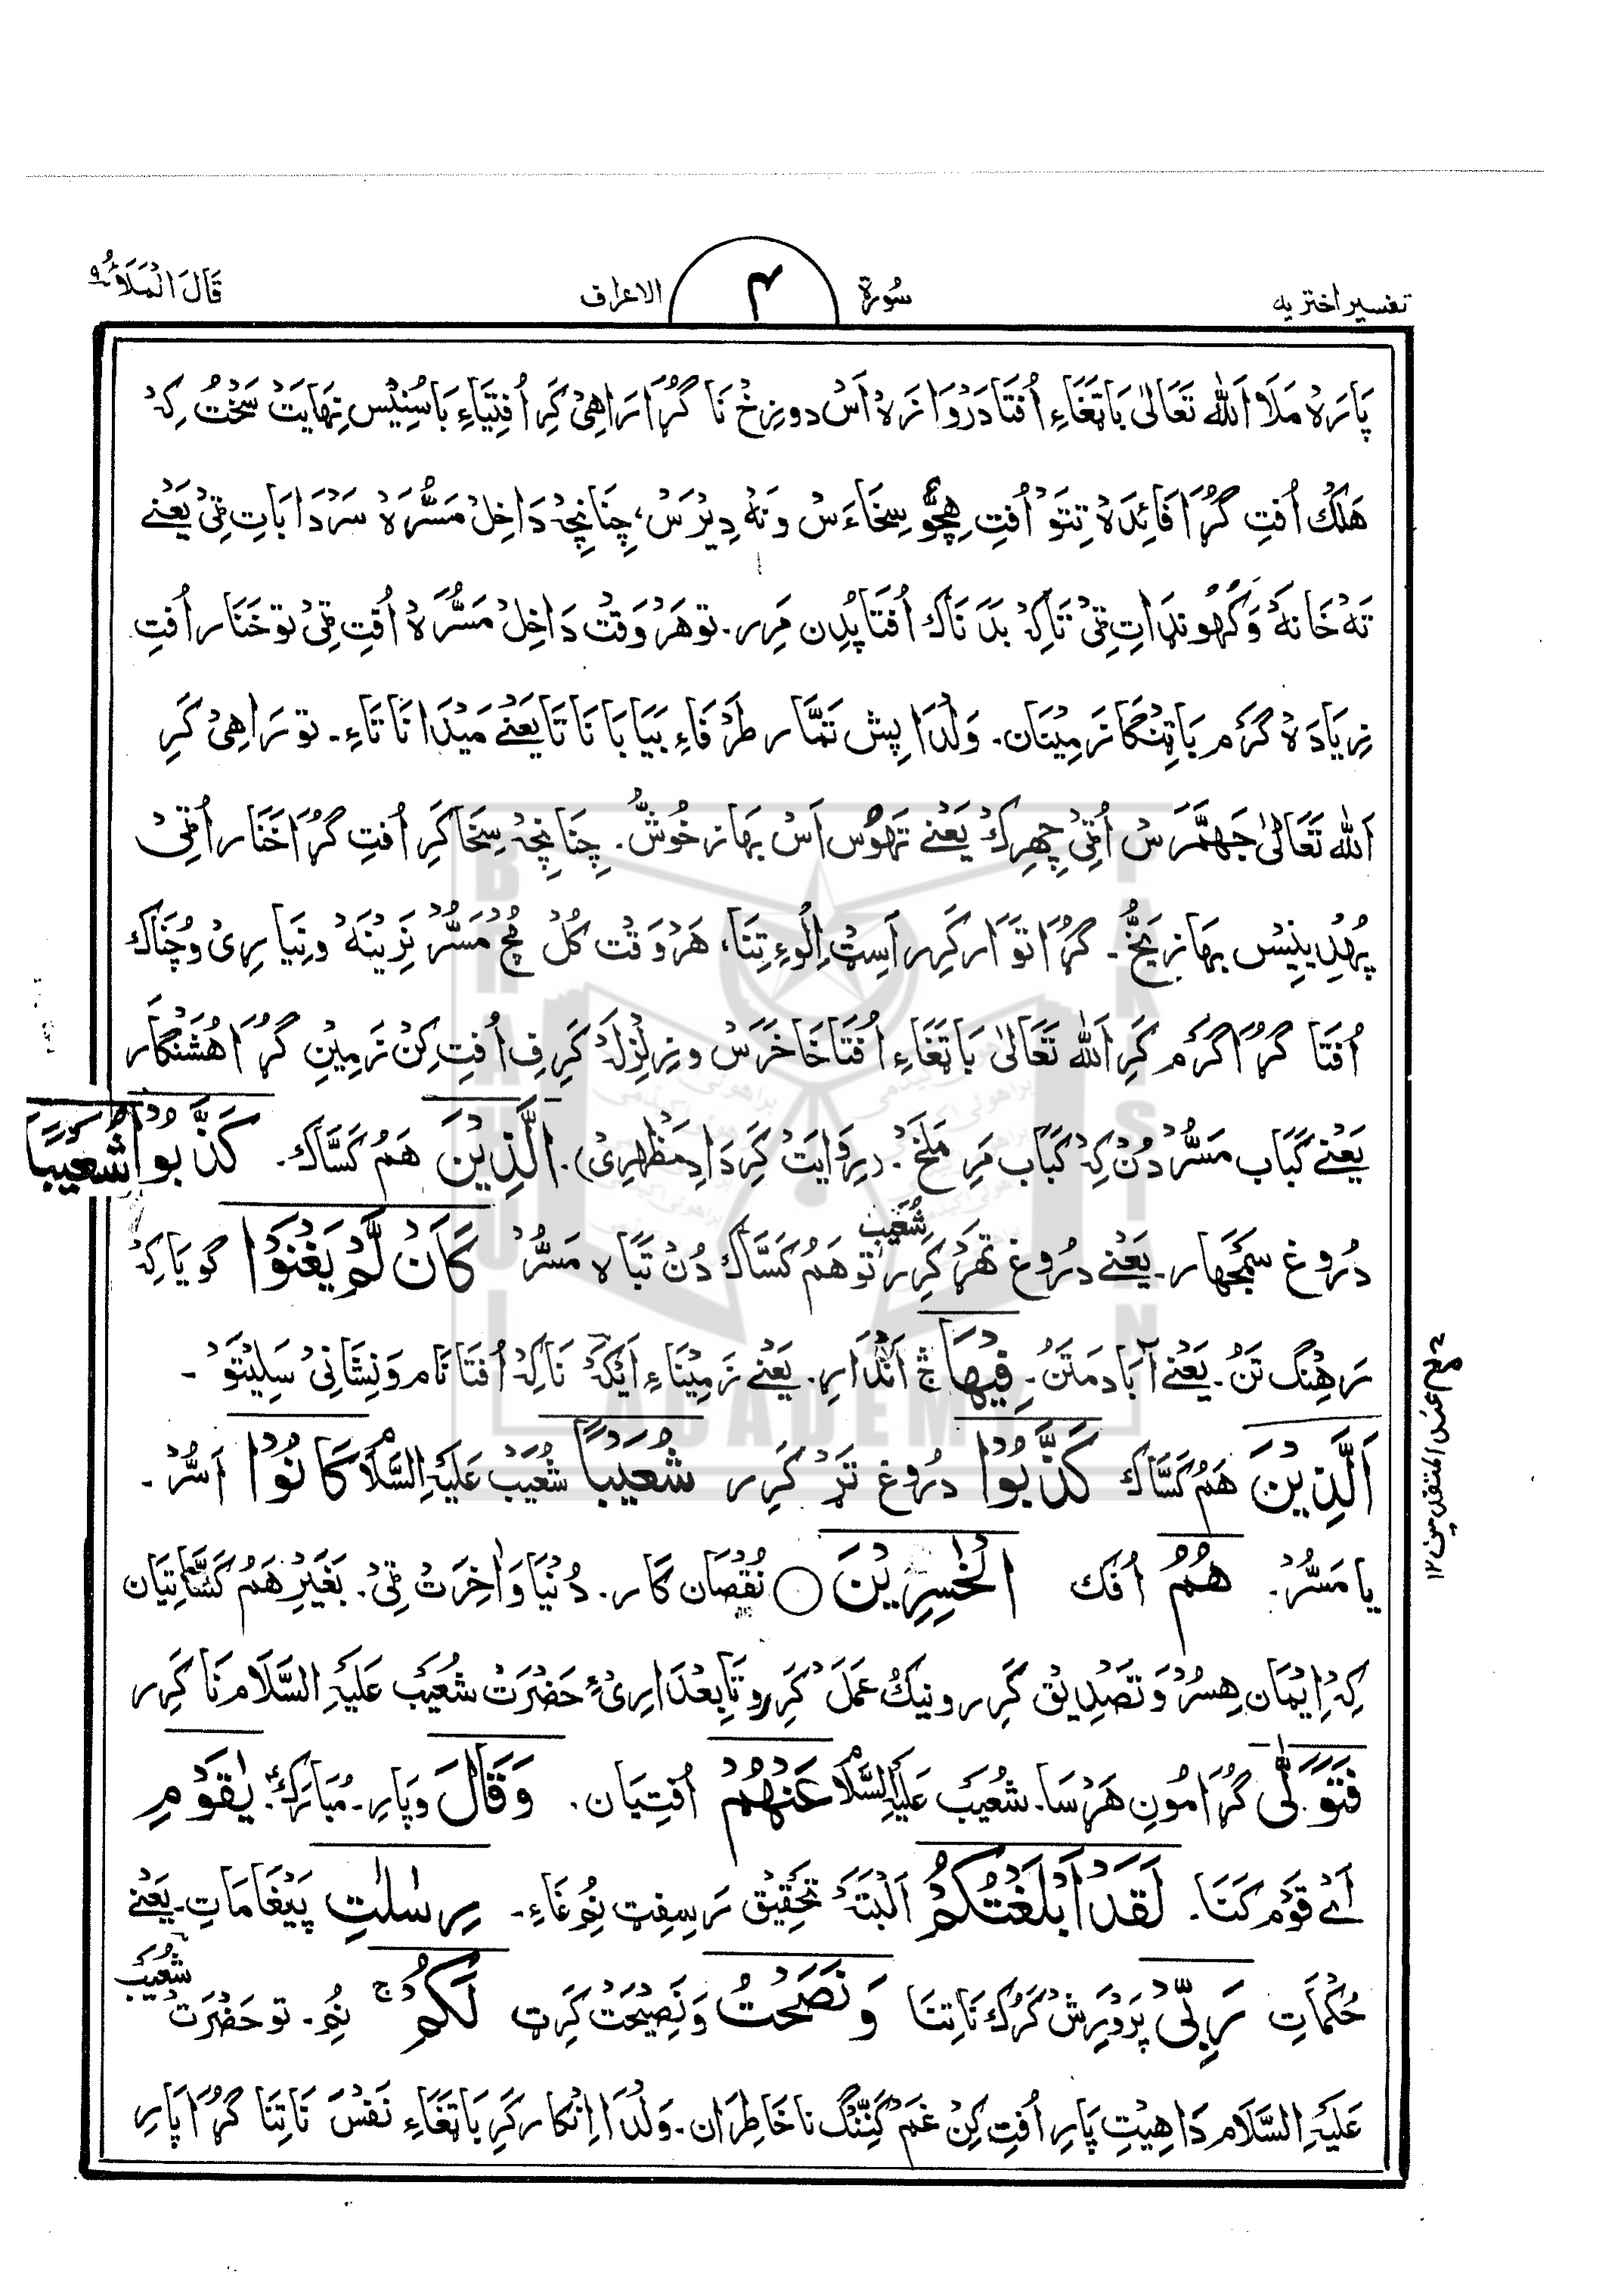 تفسیر اختریه
سُورة
۴
الاعراف
قَالَ الْمَلَاُ ۹
پَارَہ مَلَا اَللّٰه تَعَالیٰ بَاتِغَاءِ اُفتَا دَرْوَازَہ اَس دوزِخْ نَا گُڑَا رَاهِیْ کَرِ اُفتِیَاءِ بَاسُنِیْس نِهَایَتْ سَخْتُ کِہْ
هَلَكْ اُفتِ گُڑَا فَائِدَہ تِتَوْ اُفتِ هِچُّو سِخَاءَسْ وَنَهْ دِیْرَسْ، چَنَانِچِہْ دَاخِلْ مَسُّرَہ سَرْدَابَاتِ ٹِیْ یَعْنے
تَهْ خَانَهْ وَكَهُونڈَاتِ ٹِیْ تَاکِہْ بَدَنَاكْ اُفتَا پُدِن مَرِر۔ تو هَرْ وَقْتْ دَاخِلْ مَسُّرَہ اُفتِ ٹِیْ تو خَنَار اُفتِ
زِیَادَہ گَرَم بَاتِنْگَا زَمِیْنَان۔ وَلْدَا پِش تَمَّار طَرْفَاءِ بَیَابَانَاتَا یَعْنے مَیْدَانَاتَاءِ۔ تو رَاهِیْ کَرِ
اَللّٰه تَعَالیٰ جَهمَّرَسْ اُٹِیْ چِهِرِكْ یَعْنے تَهوس اَسْ بهاز خُوشُّ۔ چَنَانِچِہْ سِخَا کَرِ اُفتِ گُڑَا خَنَار اُٹِیْ
پُهدِینِیْس بهاز یَخُّ۔ گُڑَا تَوَّار کَرِر اَسِٹ اِلْوءِ تِنَا، هَرْ وَقْت کُلْ مُچْ مَسُّرْ نَرِیْنَهْ ونِیَارِیْ وَچُنَاكْ
اُفتَا گُڑَا گَرَم کَرِ اَللّٰه تَعَالیٰ بَاتِغَاءِ اُفتَا خَاخَرَسْ وزِلْزِلَهْ کَرِفِ اُفتِ کِنْ زَمِیْنِ گُڑَا هُشَنْگَار
یَعْنے کَبَاب مَسُّرْ دُنْ کِہْ کَبَاب مَرِ مَلَخْ۔ (رِوَایَتْ کَرِ دَادِ مَظْهَرِیْ)۔ الَّذِیْنَ هَمْ کَسَّاكْ۔ کَذَّبُوْا شُعَیْبًا
دُرُوغ سَمْجَهار۔ یَعْنے دُرُوغ تَهڑ کَرِر شُعَیْبَ تو هَمْ کَسَّاكْ دُنْ تَبَاہ مَسُّرْ کَاَنْ لَّمْ یَغْنَوْا گویَا کِہْ
رَهِنْگ تَنُ۔ یَعْنے آبَاد مَتَنُ۔ فِیْهَا ج اَنْدَارِ۔ یَعْنے زَمِیْنَاءِ اَیْكَہْ نَاکِہْ اُفتَا نَام وَنِشَانِیْ سَلِیْتَوْ۔
اَلَّذِیْنَ هَمْ کَسَّاكْ کَذَّبُوْا دُرُوغ تَڑ کَرِر شُعَیْبًا شُعَیْبْ عَلَیْہِ السَّلَام کَانُوْا اَسُّرْ۔
یا مَسُّرْ۔ هُمُ اُفك الْخٰسِرِیْنَ ○ نُقْصَان کَار۔ دُنْیَا وَاٰخِرَتْ ٹِیْ۔ بَغَیْرِ هَمْ کَسَّاتِیَان
کِہْ اِیْمَان هِسُرْ وَتَصْدِیْق کَرِر و نیك عَمَلْ کَرِر و تَابِعْدَارِیْءِ حَضْرَتْ شُعَیْبْ عَلَیْہِ السَّلَام نَا کَرِر
فَتَوَلّٰی گُڑَا مُونِ هَرْسَا۔ شُعَیْبْ عَلَیْہِ السَّلَام عَنْهُمْ اُفتِیَان۔ وَقَالَ وَپَارِ۔ مُبَارَك۔ یٰقَوْمِ
اَےْ قَوْم کَنَا۔ لَقَدْ اَبْلَغْتُكُمْ اَلْبَتَّہْ تَحْقِیْق رَسِفِٹ نُمْ غَاءِ۔ رِسٰلٰتِ پَیْغَامَاتِ۔ یَعْنے
حُکْمَاتِ رَبِّیْ پَرْوَرِشْ کَرُك نَا تِنَا وَنَصَحْتُ وَنَصِیْحَتْ کَرِٹ لَكُمْ ج نُمِ۔ تو حَضْرَتْ شُعَیْبْ
عَلَیْہِ السَّلَام دَا هِیْتِ پَارِ اُفتِ کِنْ غَمْ کَنِّنْگ نا خَاطِرَان۔ وَلْدَا اِنْکَار کَرِ بَاتِغَاءِ نَفْسْ نَا تِنَا گُڑَا پَارِ